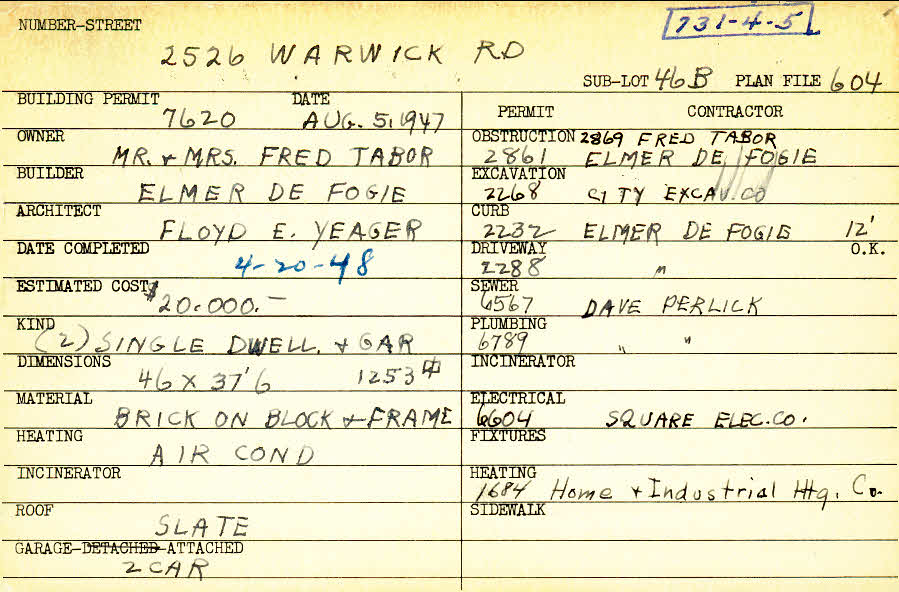 NUMBER-STREET
731-4-5
2526 WARWICK RD
SUB-LOT 46B PLAN FILE 604
BUILDING PERMIT DATE
7620 AUG. 5, 1947
OWNER
MR. + MRS. FRED TABOR
BUILDER
ELMER DE FOGIE
ARCHITECT
FLOYD E. YEAGER
DATE COMPLETED
4-20-48
ESTIMATED COST
$20.000.—
KIND
(2) SINGLE DWELL. + GAR
DIMENSIONS
46 X 37'6 1253
MATERIAL
BRICK ON BLOCK + FRAME
HEATING
AIR COND
INCINERATOR
ROOF
SLATE
GARAGE-DETACHED-ATTACHED
2 CAR
PERMIT CONTRACTOR
OBSTRUCTION 2869 FRED TABOR
2861 ELMER DE FOGIE
EXCAVATION
2268 CITY EXCAV. CO
CURB
2232 ELMER DE FOGIE 12'
DRIVEWAY O.K.
2288 "
SEWER
6567 DAVE PERLICK
PLUMBING
6789 " "
INCINERATOR
ELECTRICAL
6604 SQUARE ELEC. CO.
FIXTURES
HEATING
1684 Home + Industrial Htg. Co.
SIDEWALK